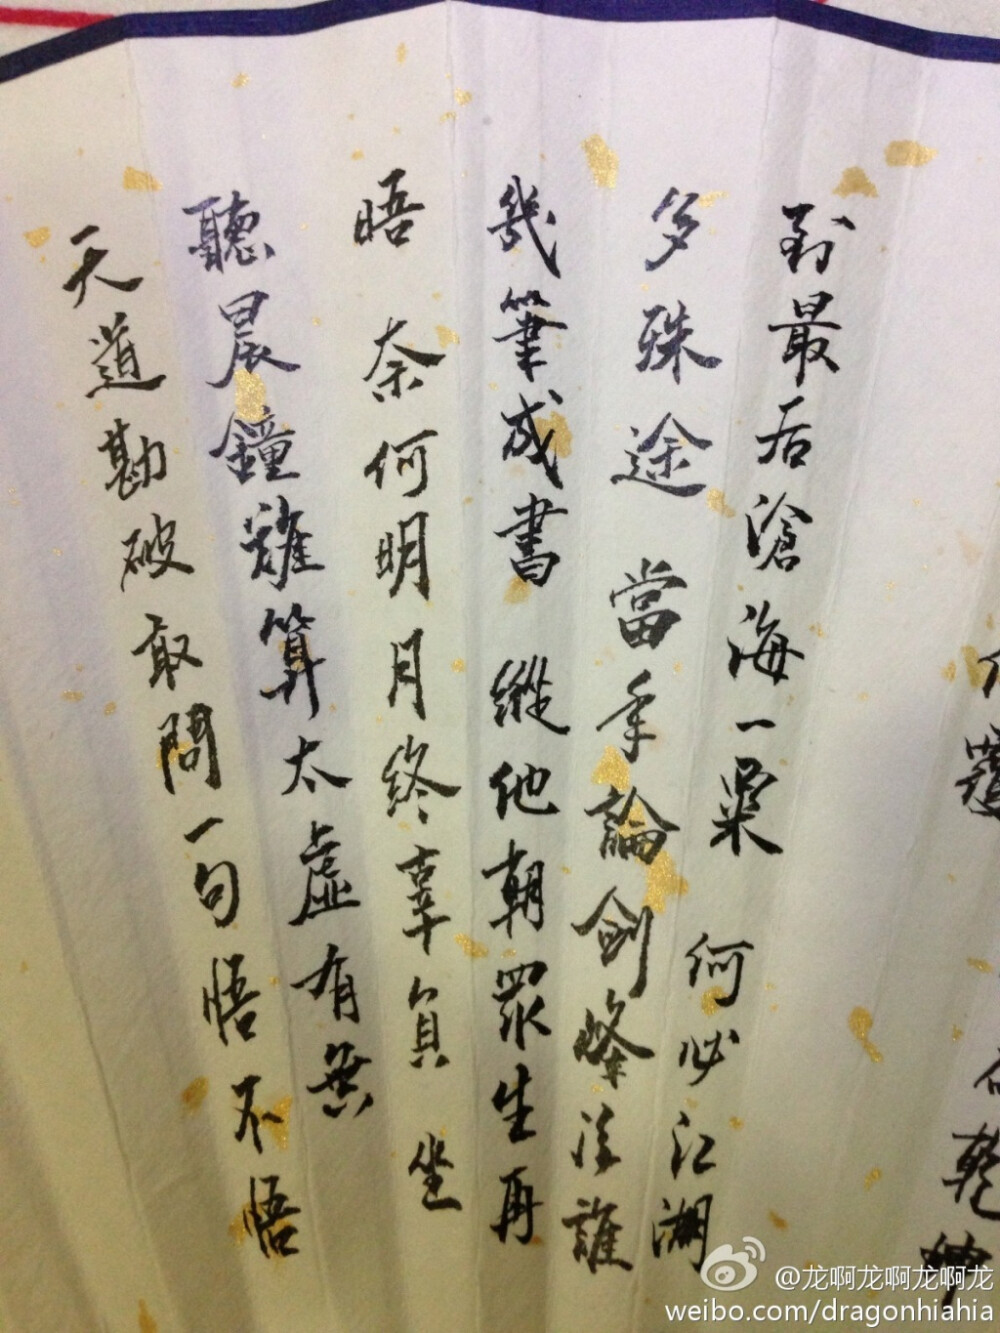 覆 乾坤
到最后滄海一粟 何必江湖
多殊途 當年論劍峰誰
幾筆成書 縱他朝眾生再
晤 奈何明月終辜負 坐
聽晨鐘難算太虛有無
天道勘破敢問一句悟不悟
@龙啊龙啊龙啊龙
weibo.com/dragonhiahia